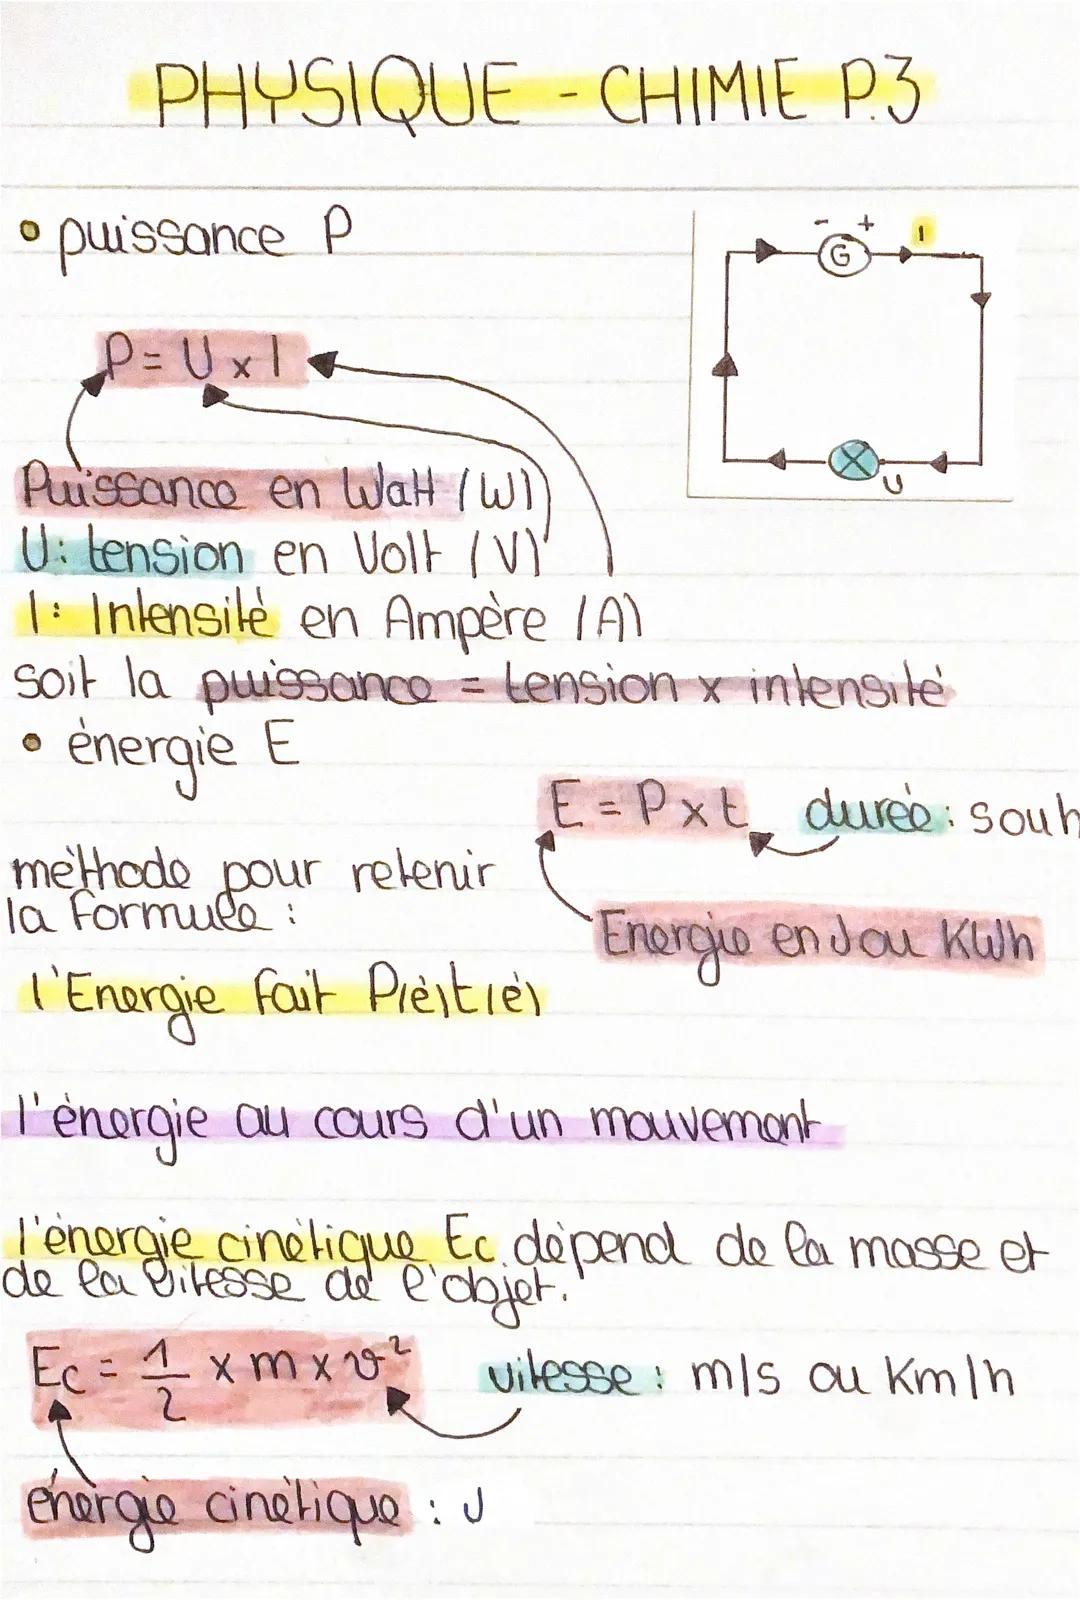 PHYSIQUE - CHIMIE P.3
• puissance P
- +
G
I
P = U x I
U
Puissance en Watt (W)
U: tension en Volt (V)
I: Intensité en Ampère (A)
soit la puissance = tension x intensité
• énergie E
E = P x t
durée : s ou h
méthode pour retenir
la formule :
Energie en J ou KWh
l'Energie fait P(è)t(é)
l'énergie au cours d'un mouvement
l'énergie cinétique Ec dépend de la masse et
de la vitesse de l'objet.
Ec = 1/2 x m x v²
vitesse : m/s ou Km/h
énergie cinétique : J